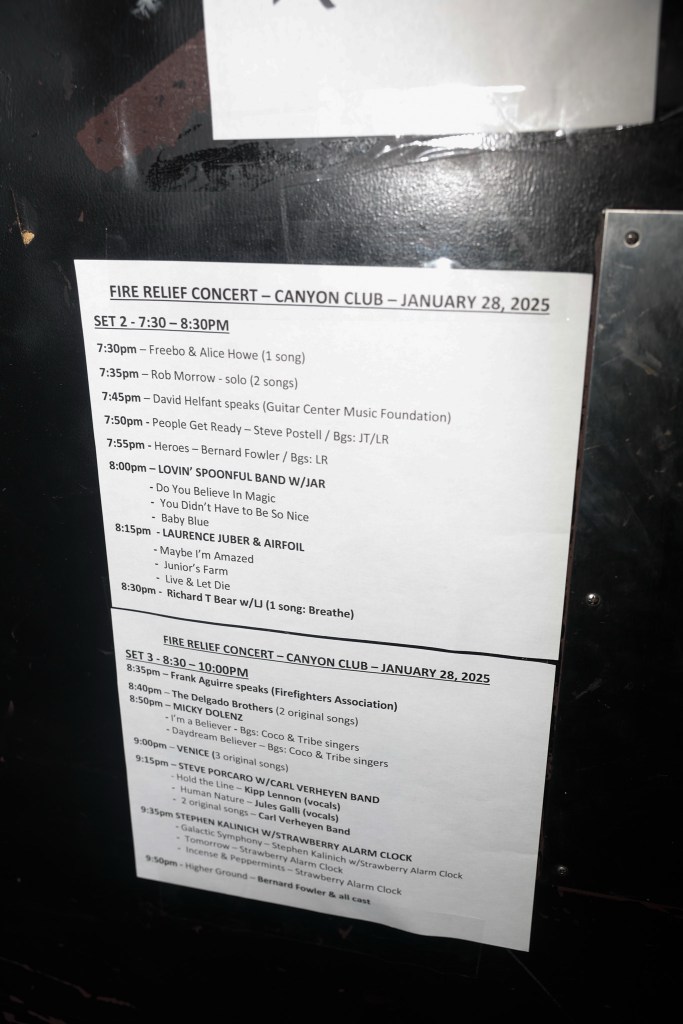 FIRE RELIEF CONCERT – CANYON CLUB – JANUARY 28, 2025
SET 2 - 7:30 – 8:30PM
7:30pm – Freebo & Alice Howe (1 song)
7:35pm – Rob Morrow - solo (2 songs)
7:45pm – David Helfant speaks (Guitar Center Music Foundation)
7:50pm - People Get Ready – Steve Postell / Bgs: JT/LR
7:55pm - Heroes – Bernard Fowler / Bgs: LR
8:00pm – LOVIN' SPOONFUL BAND W/JAR
- Do You Believe In Magic
- You Didn't Have to Be So Nice
- Baby Blue
8:15pm - LAURENCE JUBER & AIRFOIL
- Maybe I'm Amazed
- Junior's Farm
- Live & Let Die
8:30pm - Richard T Bear w/LJ (1 song: Breathe)
FIRE RELIEF CONCERT – CANYON CLUB – JANUARY 28, 2025
SET 3 - 8:30 – 10:00PM
8:35pm – Frank Aguirre speaks (Firefighters Association)
8:40pm – The Delgado Brothers (2 original songs)
8:50pm – MICKY DOLENZ
- I'm a Believer - Bgs: Coco & Tribe singers
- Daydream Believer – Bgs: Coco & Tribe singers
9:00pm – VENICE (3 original songs)
9:15pm – STEVE PORCARO W/CARL VERHEYEN BAND
- Hold the Line – Kipp Lennon (vocals)
- Human Nature – Jules Galli (vocals)
- 2 original songs – Carl Verheyen Band
9:35pm STEPHEN KALINICH W/STRAWBERRY ALARM CLOCK
- Galactic Symphony – Stephen Kalinich w/Strawberry Alarm Clock
- Tomorrow – Strawberry Alarm Clock
- Incense & Peppermints – Strawberry Alarm Clock
9:50pm - Higher Ground – Bernard Fowler & all cast